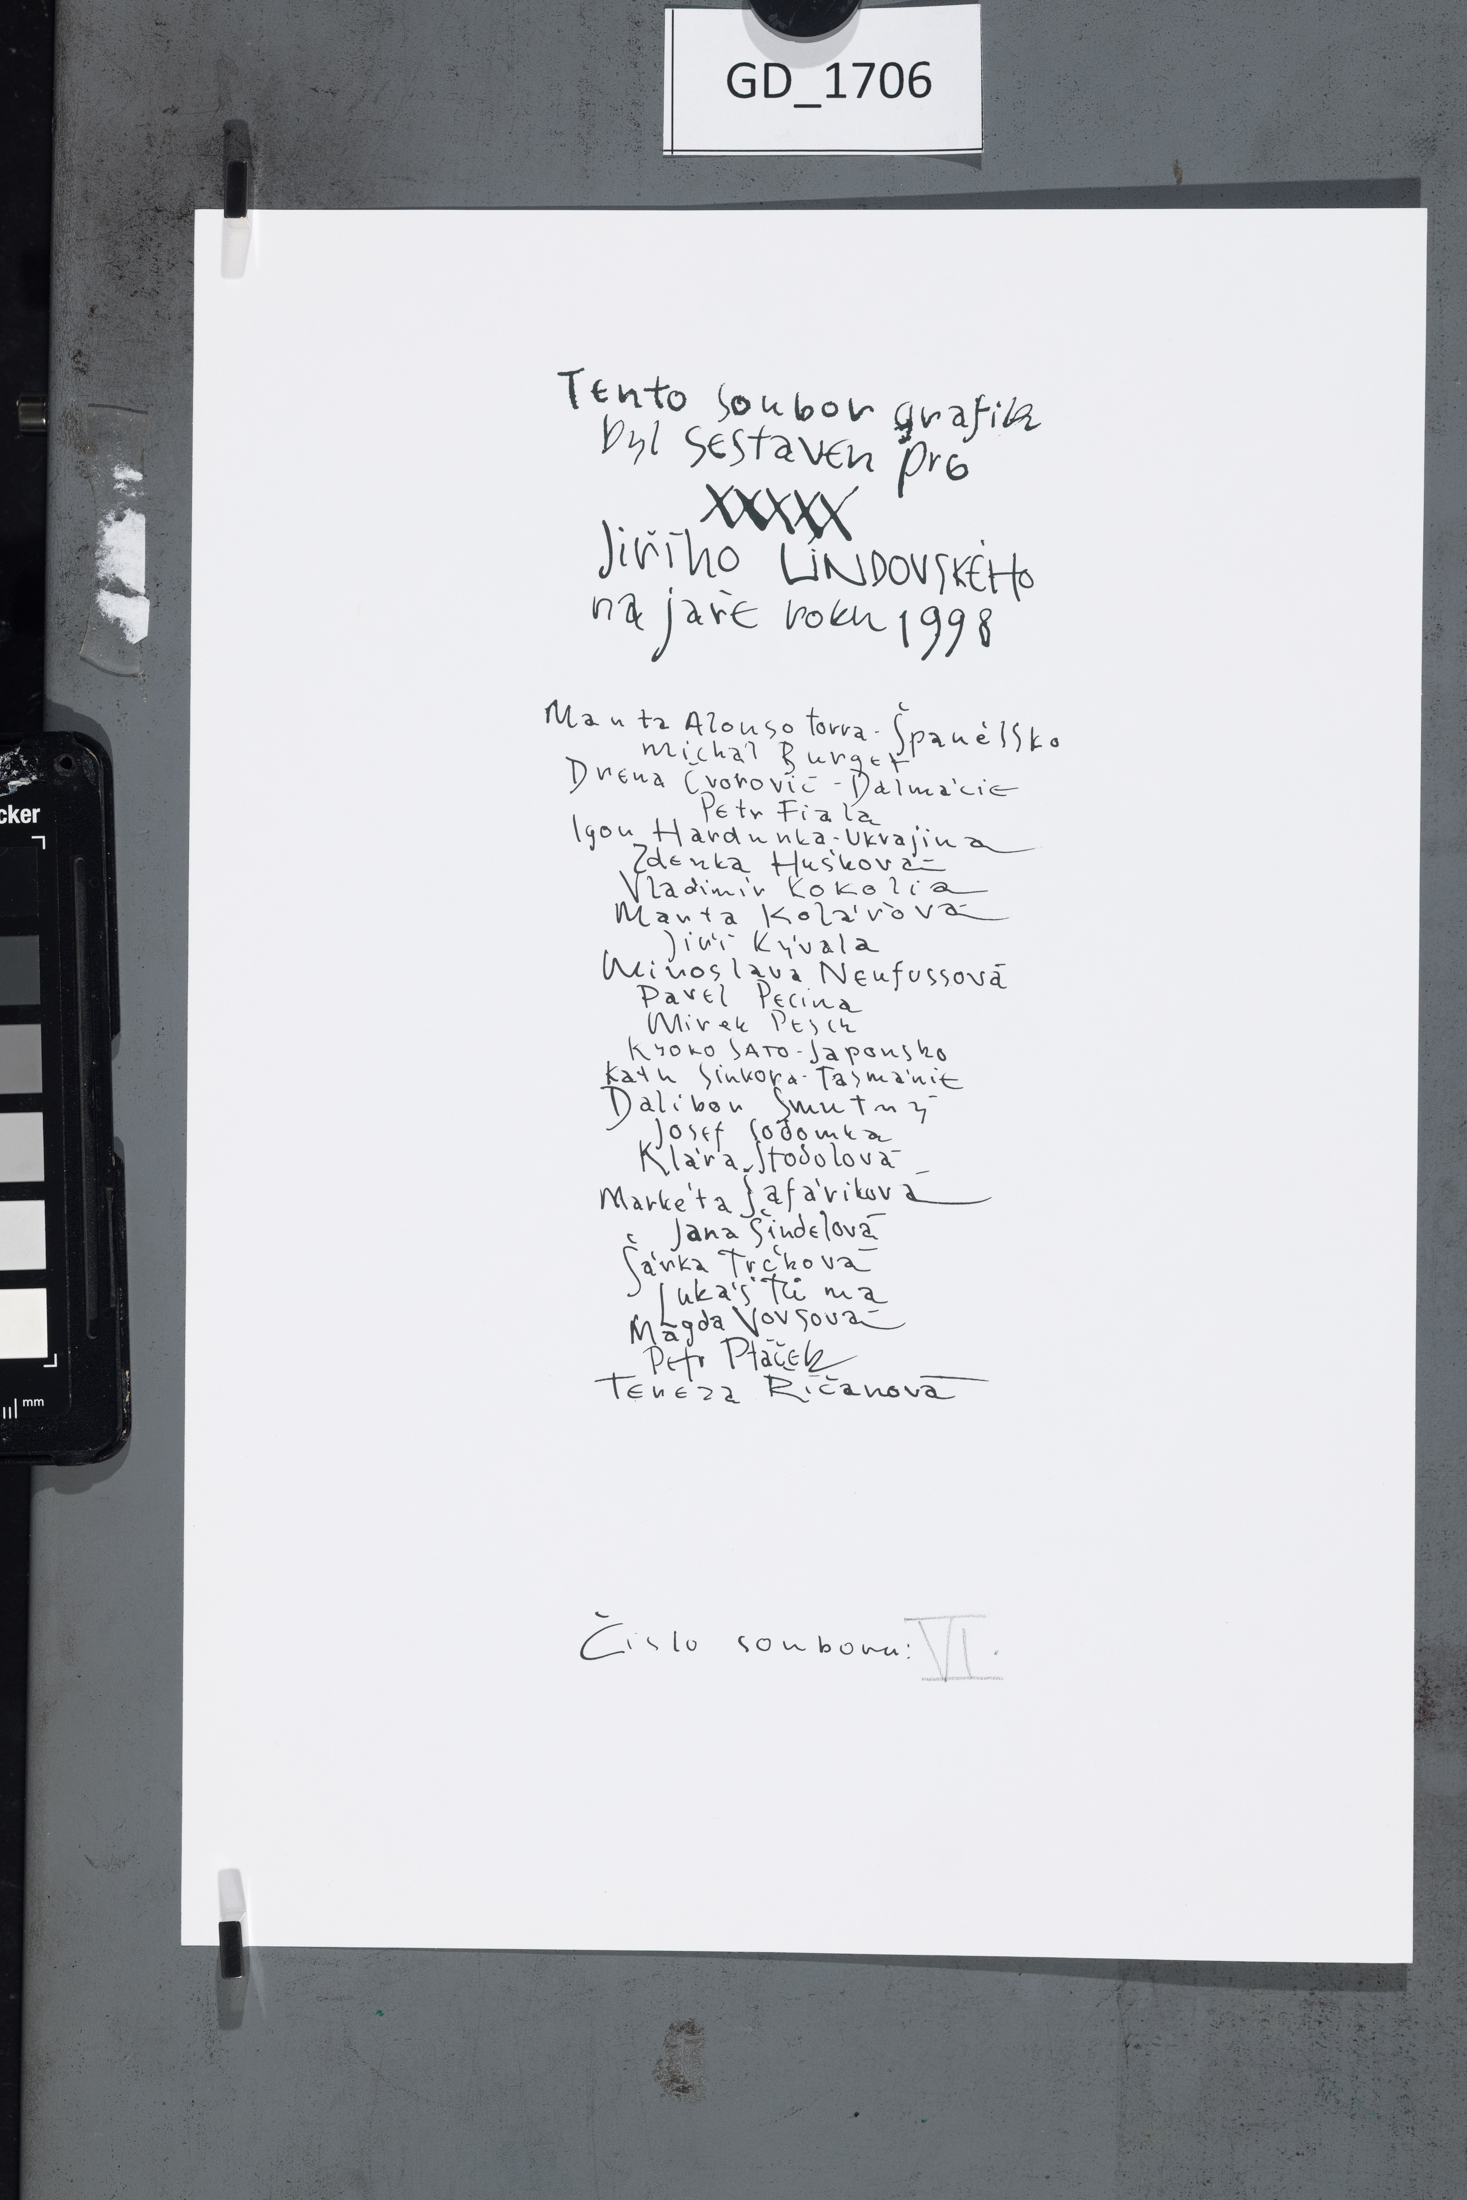 GD_1706
Tento soubor grafik
byl sestaven pro
XXXXX
Jiřího LINDOVSKÉHO
na jaře roku 1998
Marta Alonso Torra - Španělsko
Michal Burget
Drena Čvorović - Dalmácie
Petr Fiala
Igor Hardunka - Ukrajina
Zdenka Hušková
Vladimír Kokolia
Marta Kolářová
Jiří Kývala
Miroslava Neufussová
Pavel Pecina
Mirek Pesch
Kyoko SATO - Japonsko
Katu Sinkora - Tasmánie
Dalibor Smutný
Josef Sodomka
Klára Stodolová
Markéta Šafáriková
Jana Šindelová
Šárka Trčková
Lukáš Tůma
Magda Vovsová
Petr Ptáček
Tereza Říčanová
Číslo souboru: VI.
cker
mm